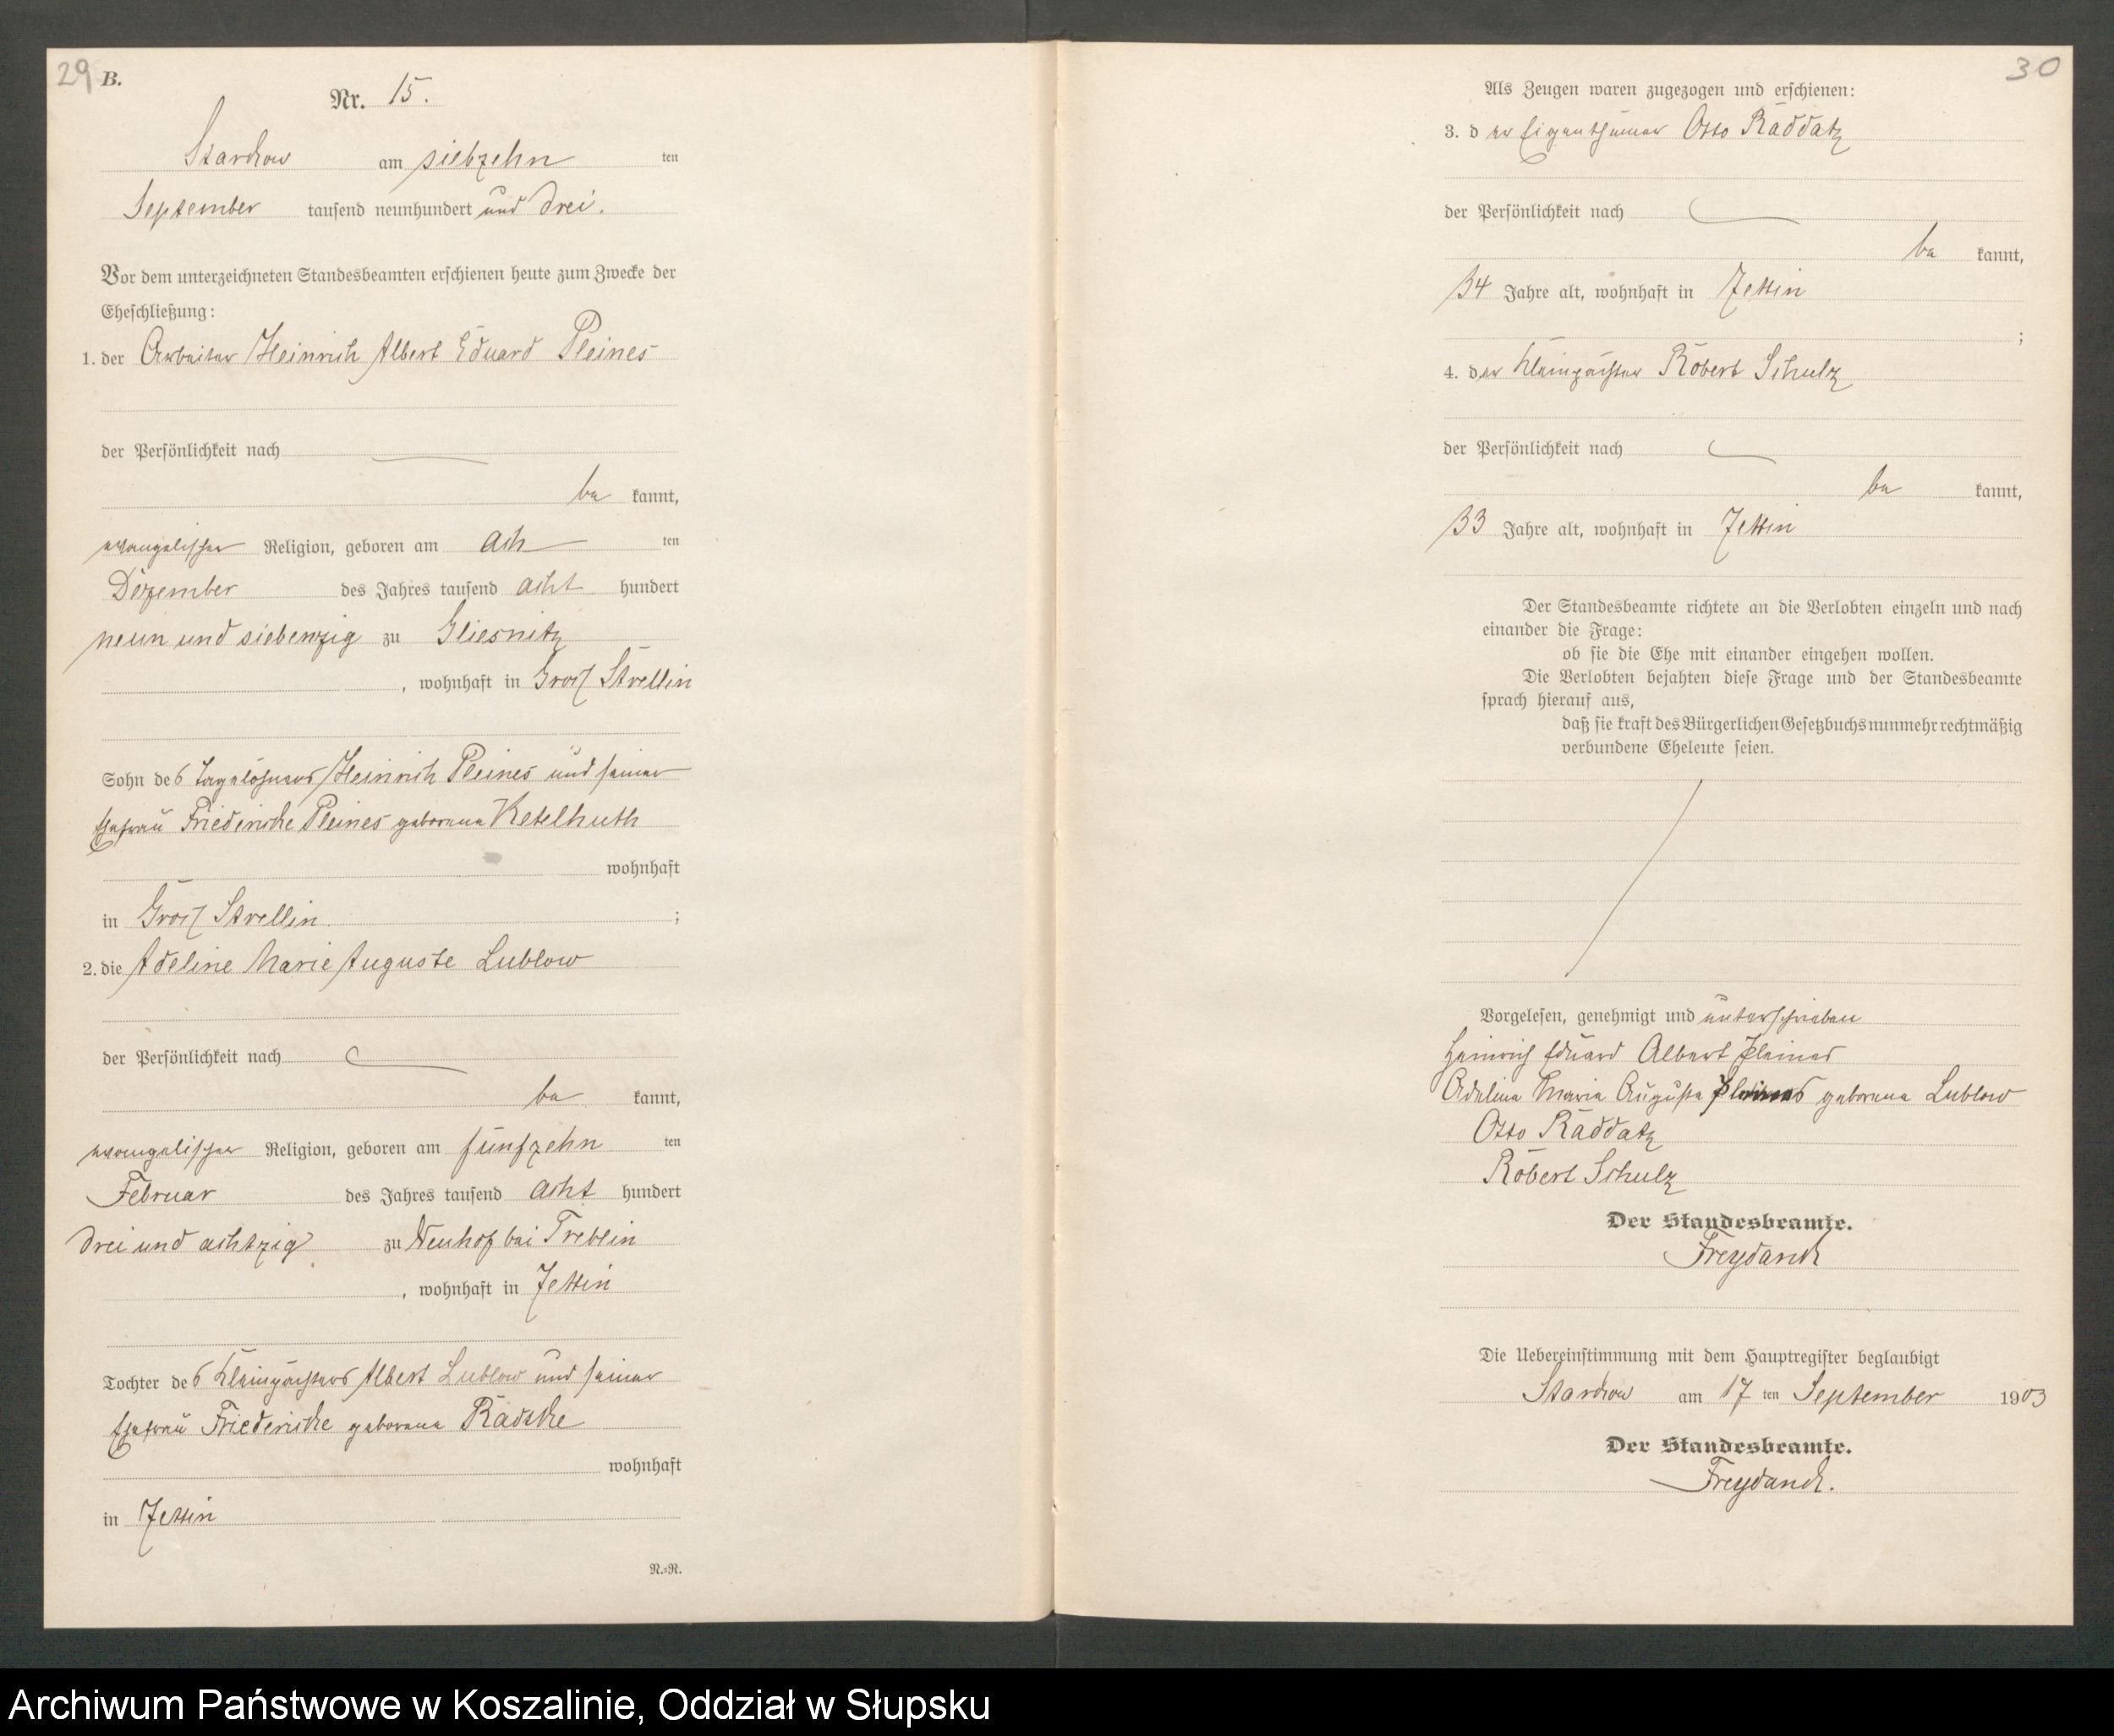 29 B.
Nr. 15.
Starkow am siebzehn ten
September tausend neunhundert und drei.
Vor dem unterzeichneten Standesbeamten erschienen heute zum Zwecke der
Eheschließung:
1. der Arbeiter Heinrich Albert Eduard Pleines
der Persönlichkeit nach
be kannt,
evangelischer Religion, geboren am ach ten
Dezember des Jahres tausend acht hundert
neun und siebenzig zu Gliesnitz
, wohnhaft in Groß Strellin
Sohn des Tagelöhners Heinrich Pleines und seiner
Ehefrau Friedericke Pleines geborene Ketelhuth
wohnhaft
in Groß Strellin ;
2. die Adeline Marie Auguste Lublow
der Persönlichkeit nach
be kannt,
evangelischer Religion, geboren am fünfzehn ten
Februar des Jahres tausend acht hundert
drei und achtzig zu Neuhof bei Treblin
, wohnhaft in Zettin
Tochter des Kleinpächters Albert Lublow und seiner
Ehefrau Friedericke geborene Radtke
wohnhaft
in Zettin
N.=R.
30
Als Zeugen waren zugezogen und erschienen:
3. der Eigenthümer Otto Raddatz
der Persönlichkeit nach
be kannt,
34 Jahre alt, wohnhaft in Zettin
;
4. der Kleinpächter Robert Schulz
der Persönlichkeit nach
be kannt,
33 Jahre alt, wohnhaft in Zettin
Der Standesbeamte richtete an die Verlobten einzeln und nach
einander die Frage:
ob sie die Ehe mit einander eingehen wollen.
Die Verlobten bejahten diese Frage und der Standesbeamte
sprach hierauf aus,
daß sie kraft des Bürgerlichen Gesetzbuchs nunmehr rechtmäßig
verbundene Eheleute seien.
Vorgelesen, genehmigt und unterschrieben
Heinrich Eduard Albert Pleines
Adeline Marie Auguste Pleines geborene Lublow
Otto Raddatz
Robert Schulz
Der Standesbeamte.
Freydanck
Die Uebereinstimmung mit dem Hauptregister beglaubigt
Starkow am 17 ten September 1903
Der Standesbeamte.
Freydanck.
Archiwum Państwowe w Koszalinie, Oddział w Słupsku